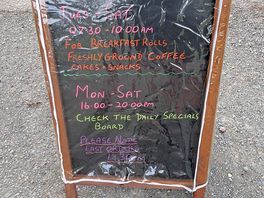 Tues - Sat
07.30 - 10.00am
For Breakfast Rolls
Freshly Ground Coffee
Cakes + Snacks
Mon - Sat
16.00 - 20.00pm
Check The Daily Specials
Board
Please Note
Last Orders
19.30pm